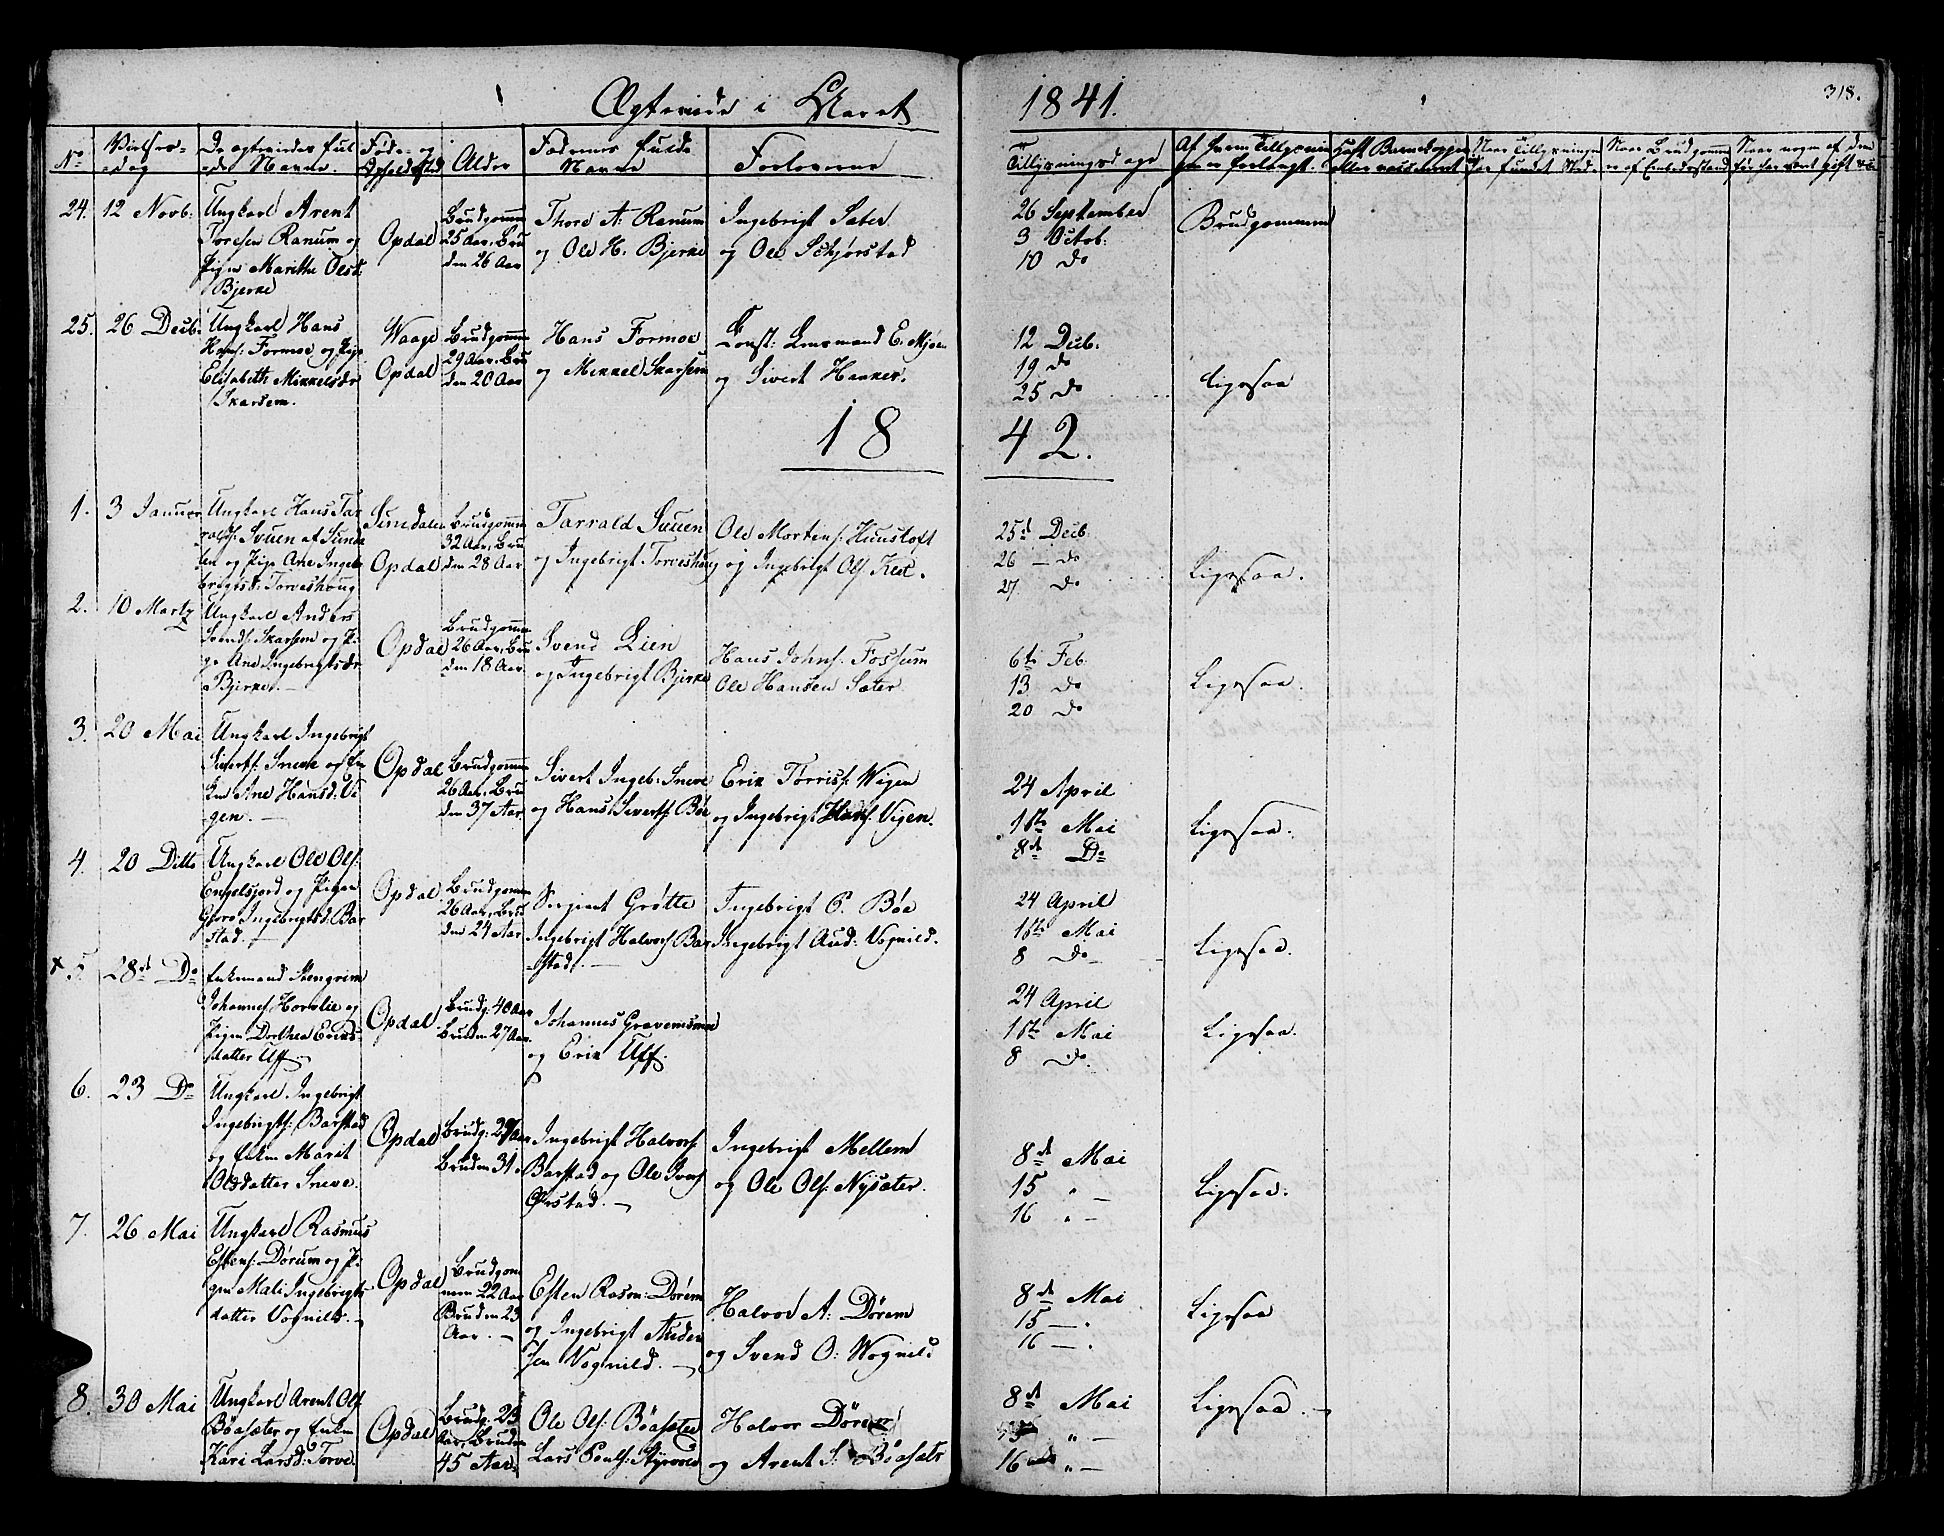 Ægteviede i Aaret 1841.
318.
No
Vielses-
dag
De ægteviedes ful-
de Navne.
Føde- og
Opholdssted
Alder
Fædrenes fulde
Navne
Forloverne
Tillysningsdage
Af hvem Tillysningen
er forlangt.
Naar Tillysningen
har fundet Sted.
Naar Brudgommen
er af Embedsstand
Naar nogen af dem
før har været gift
24. 12 Novb:
Ungkarl Arent
Toresen Ranum og
Pigen Marithe Olsd.
Bjerke
Opdal
Brudgomm
25 Aar, Bru
den 26 Aar
Thore A. Ranum
og Ole H. Bjerke
Ingebrigt Sæter
og Ole Schjørstad
26 September
3 Octob:
10 do
Brudgommen
25. 26 Decb.
Ungkarl Hans
Hans: Formoe og Pige
Elisabeth Mikkelsdr
Skarsem.
Waage
Opdal
Brudgomm
29 Aar, Bru
den 20 Aar
Hans Formoe
og Mikkel Skarsem
Const: Lensmand E. Mjøen
og Sivert Haaker.
12 Decb.
19 do
25 do
Ligesaa
1842.
1. 3 Januar
Ungkarl Hans Tar
rals: Svuen af Sunda
len og Pige Ane Inge
brigtsd: Torveshoug
Sundalen
Opdal
Brudgomm
32 Aar, Bru
den 28 Aar
Tarrald Svuen
og Ingebrigt Torveshoug
Ole Mortens: Huusloft
og Ingebrigt Ols: Klet.
25d Decb.
26 - do
27. do
Ligesaa.
2. 10 Martz
Ungkarl Anders
Svends: Skarsem og Pi
ge Ane Ingebrigtsdr
Bjerke. -
Opdal
Brudgomm
26 Aar, Bru
den 18 Aar
Svend Lien
og Ingebrigt Bjerke
Hans Johns: Fossum
Ole Hansen Sæter
6te Feb.
13 do
20 do
Ligesaa.
3. 20 Mai
Ungkarl Ingebrigt
Siverts: Sneve og En
ken Ane Hansd: Vi
gen. -
Opdal
Brudgomm
26 Aar, Bru
den 37 Aar
Sivert Ingeb: Sneve
og Hans Siverts: Bøe
Erik Torris: Wigen
og Ingebrigt Hans: Vigen.
24 April
1ste Mai
8de Do
Ligesaa.
4. 20 Ditto
Ungkarl Ole Ols:
Engelsjord og Pigen
Gjoro Ingebrigtsd: Bar
stad. -
Opdal
Brudgomm
26 Aar, Bru
den 24 Aar
Serjeant Grøtte
Ingebrigt Halvors: Bar
stad. -
Ingebrigt P. Bøe
Ingebrigt Aud: Vognild.
24 April
1ste Mai
8 do
Ligesaa.
+ 5. 28de Do
Enkemand Stengrim
Johannes: Horvlie og
Pigen Dorthea Eriks-
datter Uff -
Opdal
Brudg: 40 Aar
Bruden 27 Aar
Johannes Gravemsmoe
og Erik Uff.
24 April
1ste Mai
8 do
Ligesaa.
6. 23 Do
Ungkarl Ingebrigt
Ingebrigts: Barstad
og Enken Marit
Olsdatter Sneve.
Opdal
Brudg: 29 Aar
Bruden 31.
Ingebrigt Halvors:
Barstad og Ole Ivers:
Ørstad. -
Ingebrigt Mellem
og Ole Ols: Nysæter.
8de Mai
15 " -
16 " -
Ligesaa.
7. 26 Mai
Ungkarl Rasmus
Estens: Dørum og Pi
gen Mali Ingebrigts-
datter Vognild. -
Opdal
Brudgom
men 22 Aar
Bruden 23
Aar. -
Esten Rasm: Dørem
og Ingebrigt Anders
sen Vognild. -
Halvor A: Dørem
og Svend O: Wognild
8de Mai
15 - .
16 - .
Ligesaa
8. 30 Mai
Ungkarl Arent Ols:
Böasæter og Enken
Kari Larsd: Torve
Opdal
Brudg: 25
Aar, Bruden
45 Aar.
Ole Ols: Böasæter
Lars Pouls:
Halvor Dørem
og Arent S. Böasætr
8de Mai
15 " -
16 " -
Ligesaa. -